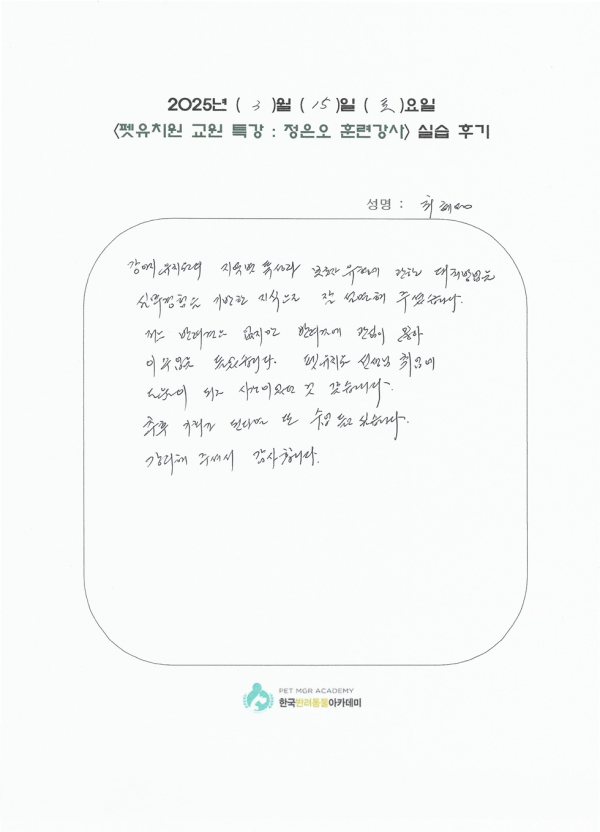 2025년 ( 3 )월 ( 15 )일 ( 토 )요일
<펫유치원 교원 특강 : 정은오 훈련강사> 실습 후기
성명 : 최
강아지 유치원의 지역별 특성과 보호자 유형에 관한 대처방법을
실무경험을 기반한 지식으로 잘 설명해 주셨습니다.
저는 반려견은 없지만 반려견에 관심이 많아
이 수업을 들었습니다. 펫유치원 선생님 취업에
도움이 되는 시간이었던 것 같습니다.
추후 기회가 된다면 또 수업 듣고 싶습니다.
강의해 주셔서 감사합니다.
PET MGR ACADEMY
한국반려동물아카데미